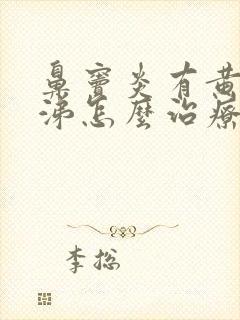 鼻窦炎有黄
涕怎麽治疗
李总